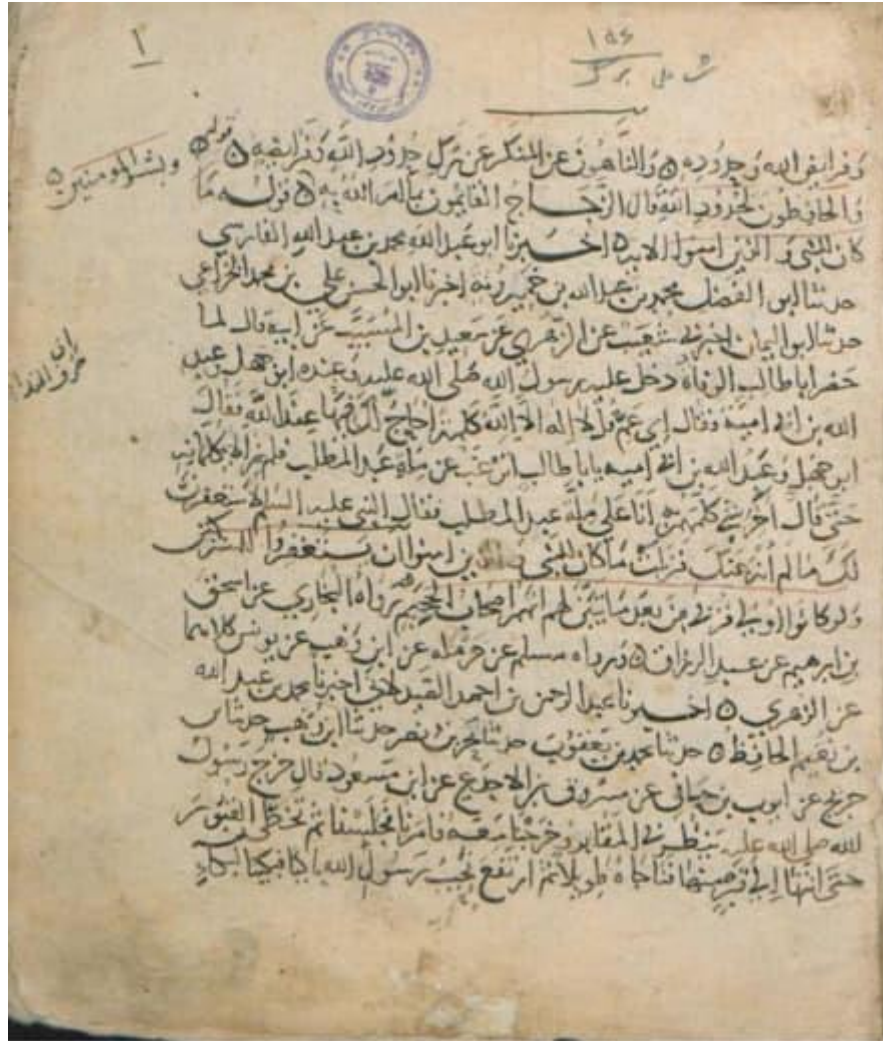 ١
١٥٤
وفرايض الله وحدوده ٥ والناهون عن المنكر عن ترك حدود الله وفرايضه ٥ قوله
وبشر المومنين ٥
والحافظون لحدود الله قال الزجاج القايمون بما امر الله به ٥ قوله ما
كان للنبي والذين امنوا الايه ٥ اخبرنا ابو عبد الله محمد بن عبد الله الفارسي
حدثنا ابو الفضل محمد بن عبد الله بن خميرويه اخبرنا ابو الحسن علي بن محمد الخزاعي
حدثنا ابو اليمان اخبرني شعيب عن الزهري عن سعيد بن المسيب عن ابيه قال لما
حضر ابا طالب الوفاة دخل عليه رسول الله صلى الله عليه وعنده ابو جهل وعبد
الله بن ابي اميه فقال اي عم قل لا اله الا الله كلمة احاج لك بها عند الله فقال
ابو جهل وعبد الله بن ابي اميه يابا طالب اترغب عن ملة عبد المطلب فلم يزالا يكلمانه
حتى قال اخر شي كلمهم به انا على ملة عبد المطلب فقال النبي عليه السلم لاستغفرن
لك ما لم انه عنك فنزلت ما كان للنبي والذين امنوا ان يستغفروا للمشركين
ولو كانوا اولي قربى من بعد ما تبين لهم انهم اصحاب الجحيم رواه البخاري عن اسحق
بن ابرهيم عن عبد الرزاق ٥ ورواه مسلم عن حرمله عن ابن وهب عن يونس كلاهما
عن الزهري ٥ اخبرنا عبد الرحمن بن احمد اخبرنا محمد بن عبد الله
بن نعيم الحافظ ٥ حدثنا محمد بن يعقوب حدثنا بحر بن نصر حدثنا ابن وهب حدثنا ابن
جريج عن ايوب بن هاني عن مسروق بن الاجدع عن ابن مسعود قال خرج رسول
الله صلى الله عليه ينظر في المقابر وخرجنا معه فامرنا فجلسنا ثم تخطى القبور
حتى انتها الى قبر منها فناجاه طويلا ثم ارتفع نحيب رسول الله باكيا فبكينا لبكايه